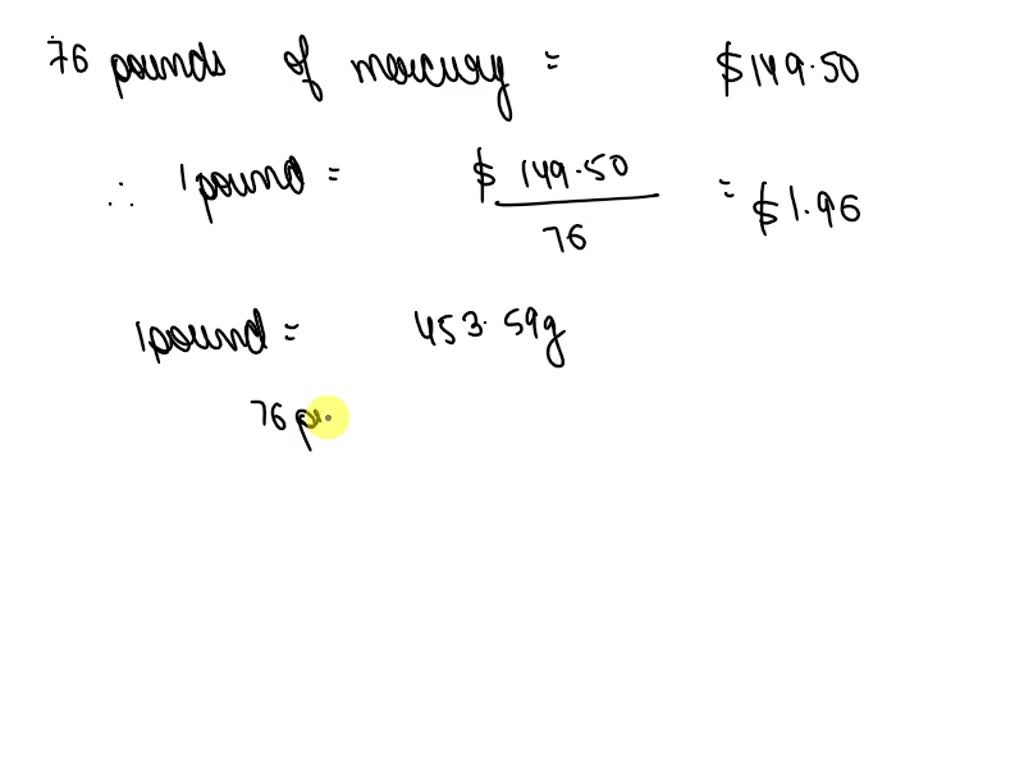 76 pounds of mercury = $149.50
∴ 1 pound = $ 149.50 / 76 = $1.96
1 pound = 453.59g
76